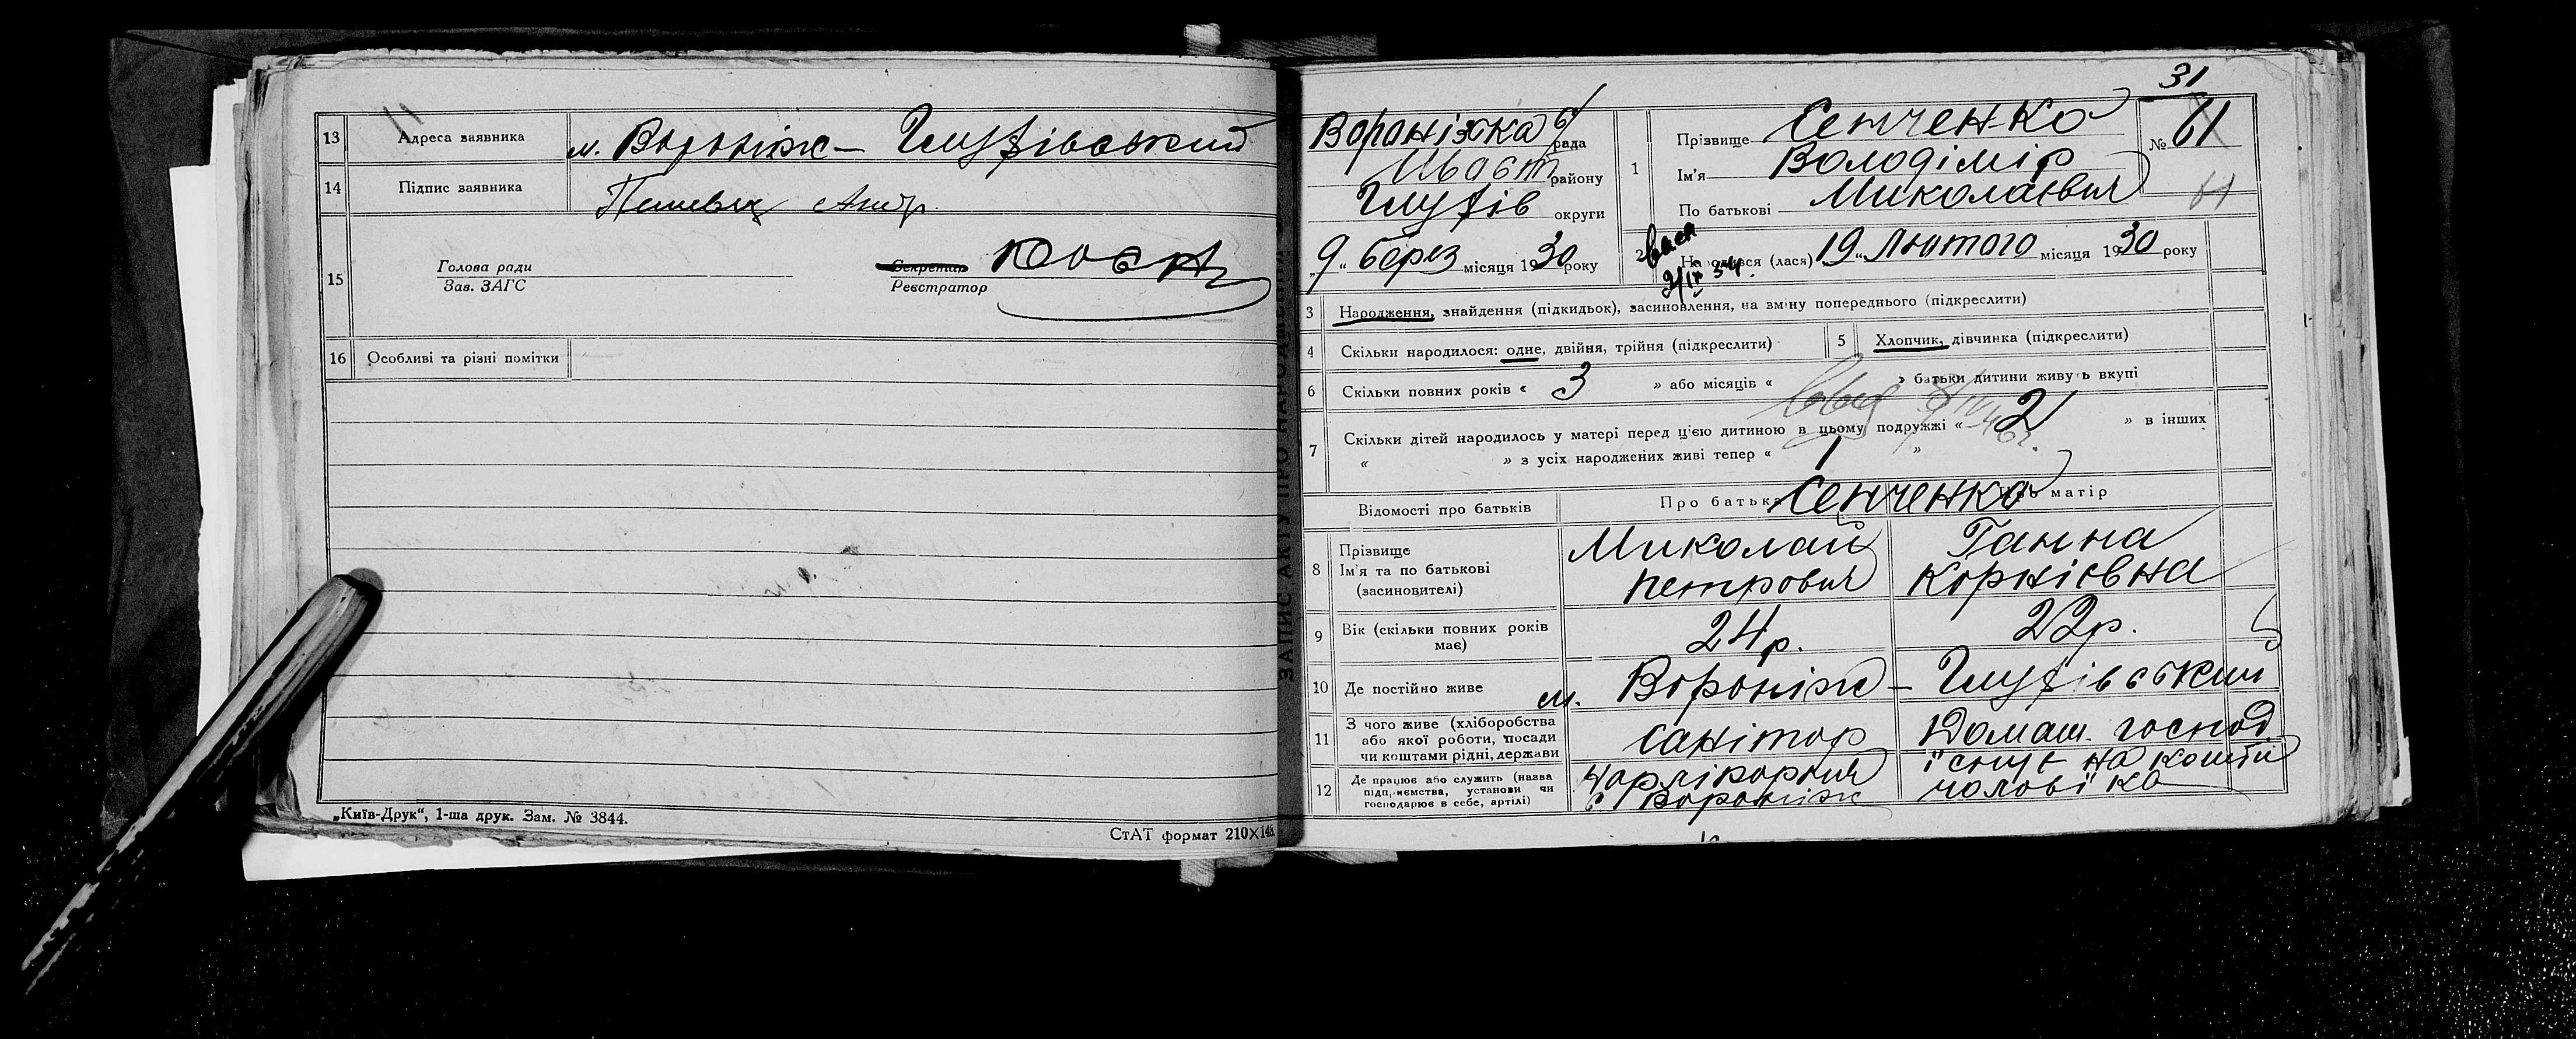 13 Адреса заявника м. Вороніж – Глухівський
14 Підпис заявника
15 Голова ради
Зав. ЗАГС
Секретар
Реєстратор
16 Особливі та різні помітки
„Київ-Друк“, 1-ша друк. Зам. № 3844.
СтАТ формат 210×148
ЗАПИС АКТУ ПРО НАРОДЖЕННЯ
31
Вороніжка рада
району
Глухів округи
„9“ берез місяця 1930 року
1 Прізвище Сенченко
Ім'я Володімір
По батькові Миколаєвич
№ 61
61
2 Народився (лася) „19“ Лютого місяця 1930 року
3 Народження, знайдення (підкидьок), засиновлення, на зміну попереднього (підкреслити)
4 Скільки народилося: одне, двійня, трійня (підкреслити) 5 Хлопчик, дівчинка (підкреслити)
6 Скільки повних років « 3 » або місяців « » батьки дитини живуть вкупі
7 Скільки дітей народилось у матері перед цією дитиною в цьому подружжі « 2 » в інших
« » з усіх народжених живі тепер « 1 »
Відомості про батьків Про батька Про матір
Сенченко
8 Прізвище
Ім'я та по батькові
(засиновителі)
Миколай
петрович
Ганна
Корніевна
9 Вік (скільки повних років
має)
24 р.
22 р.
10 Де постійно живе м. Вороніж – Глухівський
11 З чого живе (хліборобства
або якої роботи, посади
чи коштами рідні, держави
санітар
Домаш. господ.
12 Де працює або служить (назва
підприємства, установи чи
господарює в себе, артілі)
Вороніж
існує на кошти
чоловіка